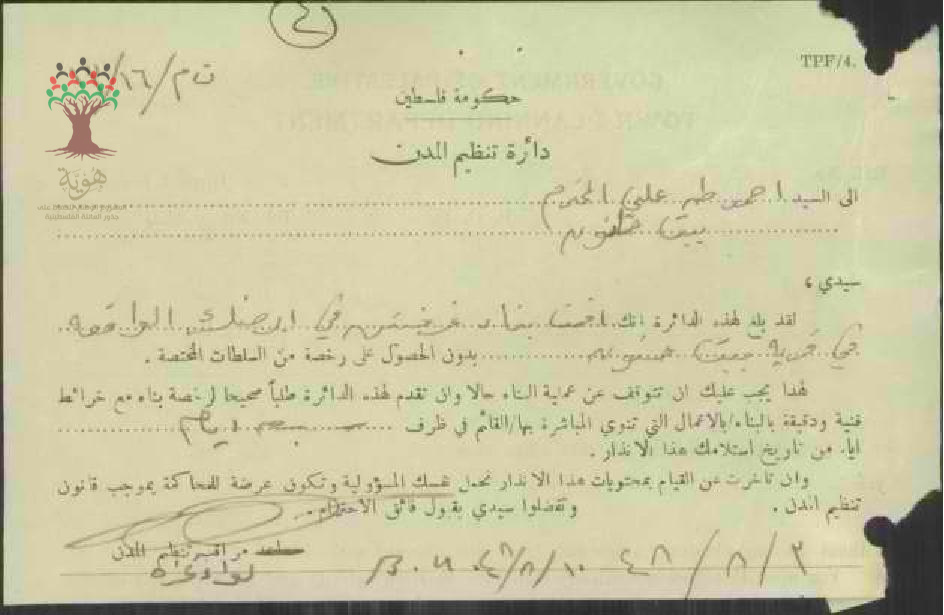 ٤
TPF/4.
ت م/١٦/
حكومة فلسطين
دائرة تنظيم المدن
هوية
الى السيد احمد طه علي المحترم
بيت حانون
سيدي ،
لقد بلغ لهذه الدائرة انك اقمت بناء غرفتين في ارضك الواقعه
في قرية بيت حانون بدون الحصول على رخصة من السلطات المختصة .
لهذا يجب عليك ان تتوقف عن عملية البناء حالا وان تقدم لهذه الدائرة طلباً صحيحا لرخصة بناء مع خرائط
فنية ودقيقة بالبناء/بالاعمال التي تنوي المباشرة بها/القائم في ظرف سبعة ايام
ايام من تاريخ استلامك هذا الانذار .
وان تأخرت عن القيام بمحتويات هذا الانذار تحمل نفسك المسؤولية وتكون عرضة للمحاكمة بموجب قانون
تنظيم المدن . وتفضلوا سيدي بقبول فائق الاحترام .
مساعد مراقب تنظيم المدن
لواء غزة
٤٨/٨/١٠
٤٨/٨/٣